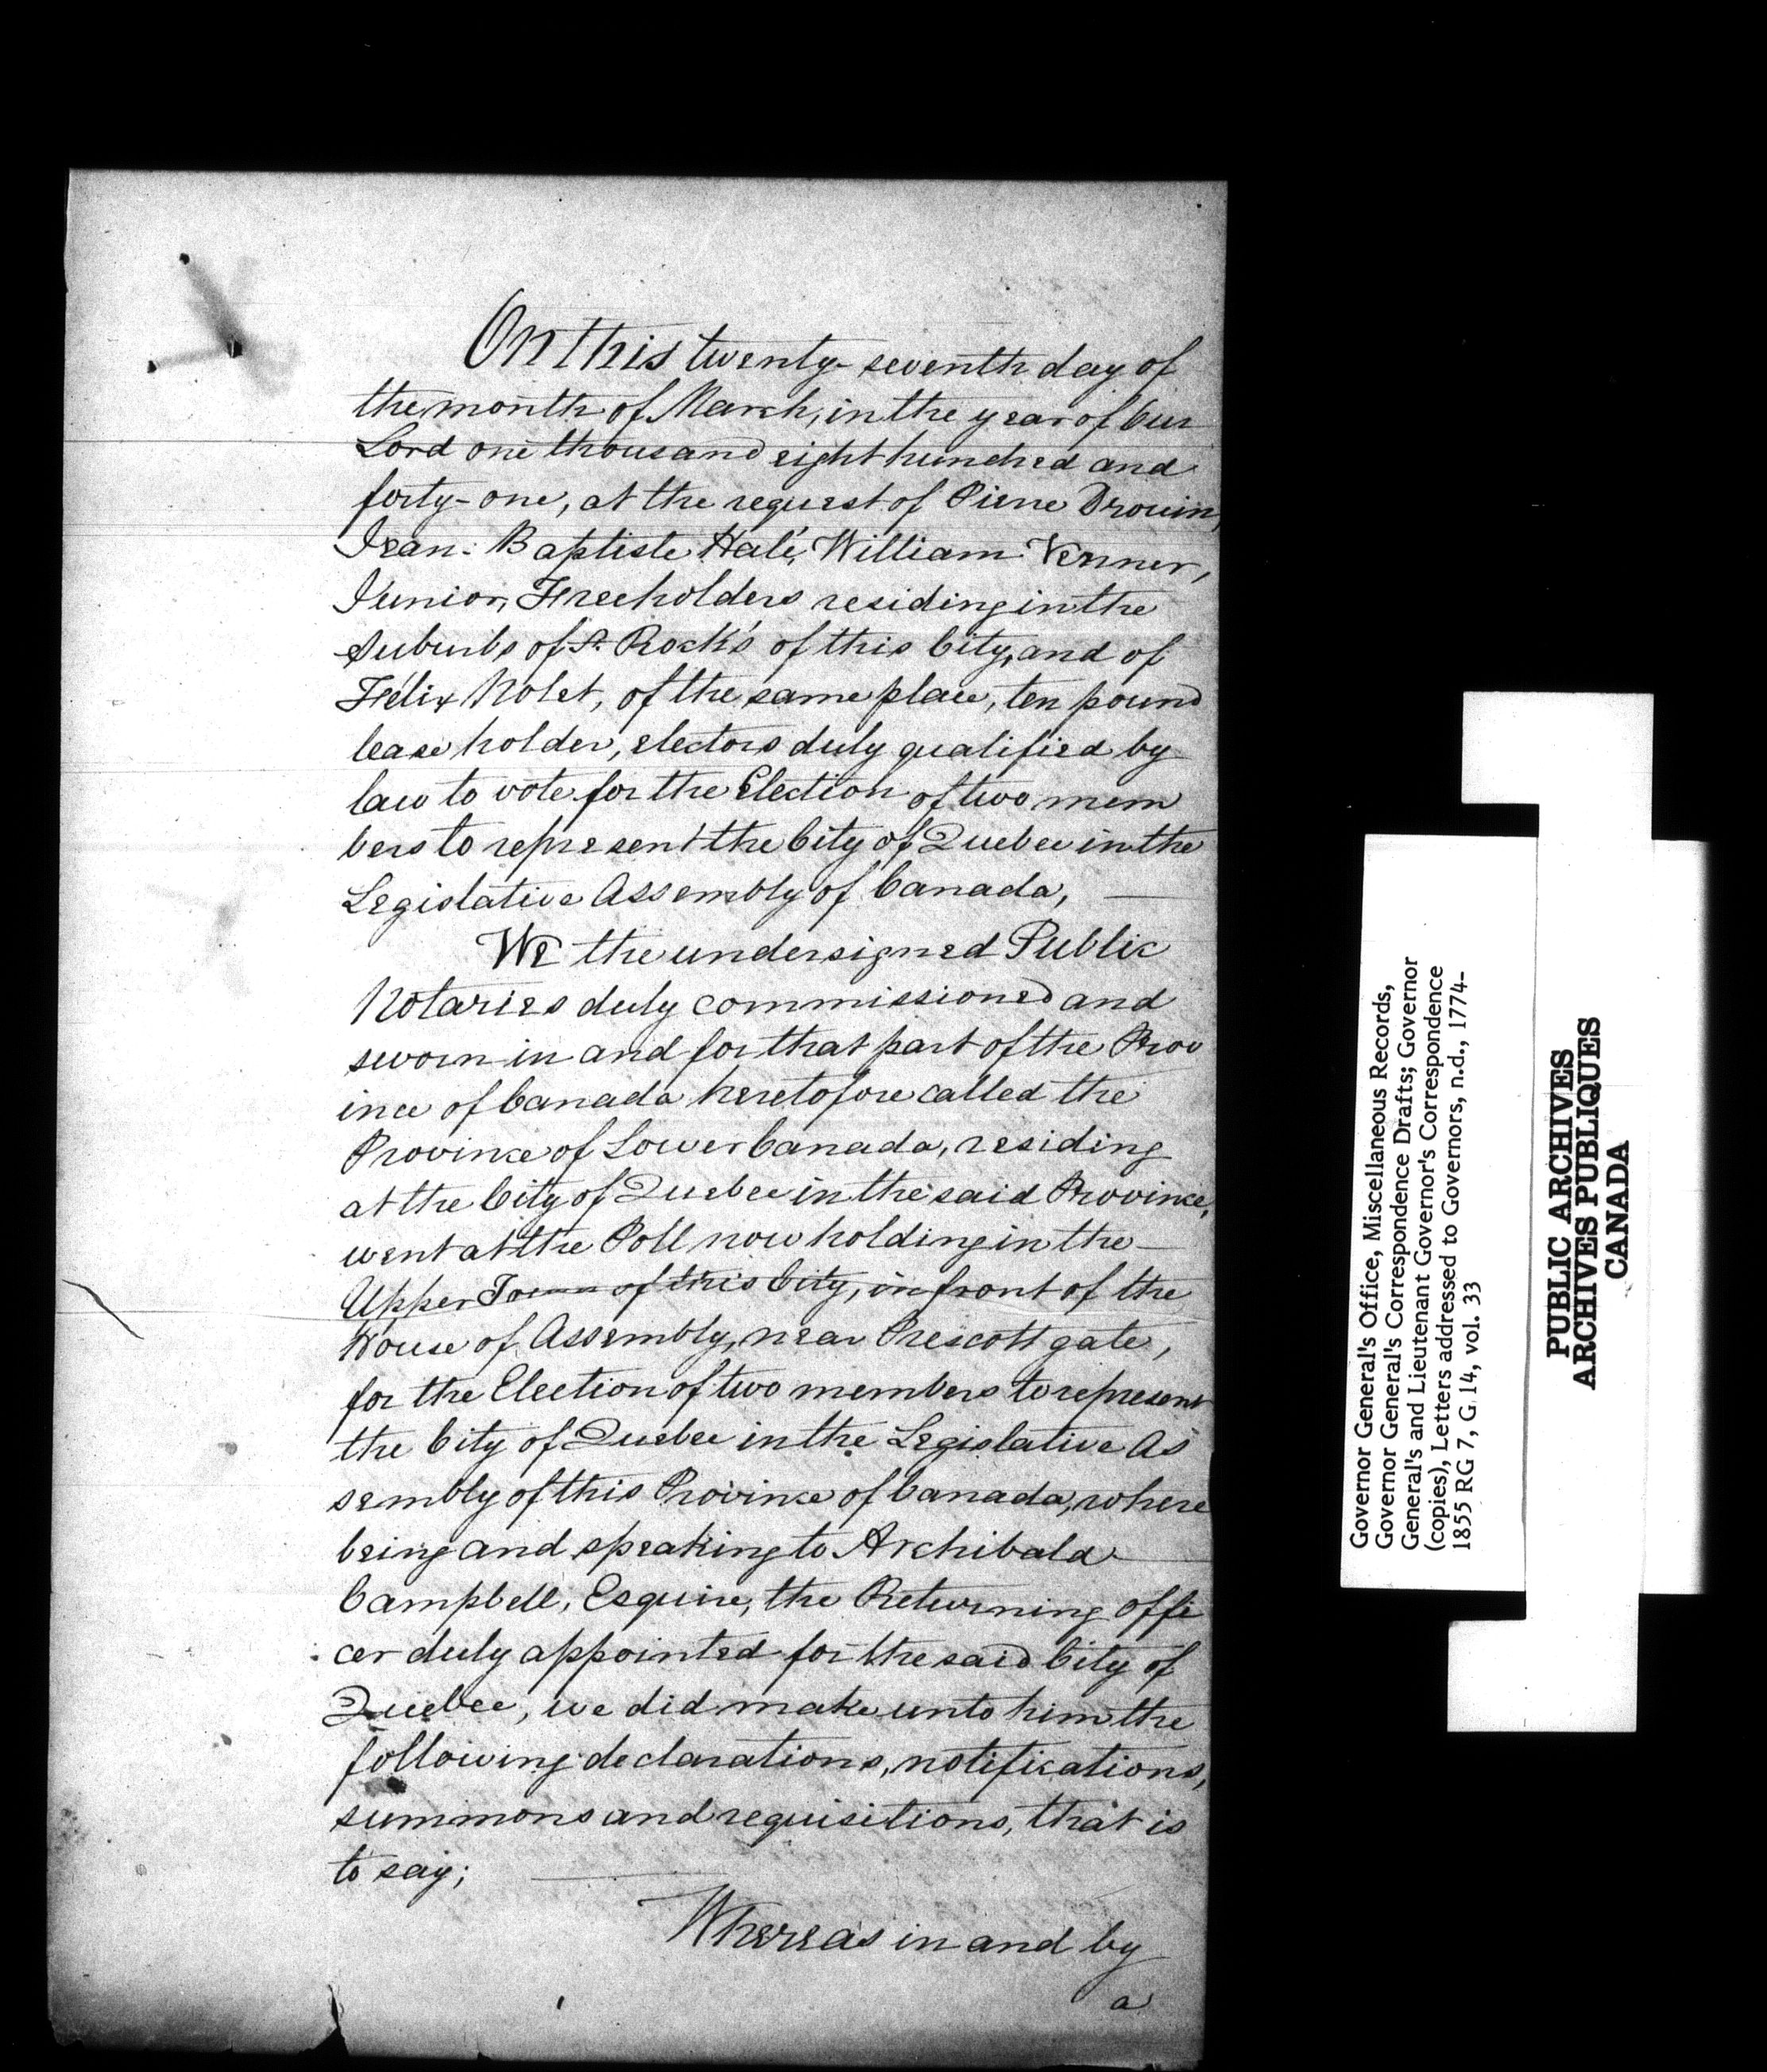 On this twenty-seventh day of
the month of March, in the year of Our
Lord one thousand eight hundred and
forty-one, at the request of Pierre Drouin,
Jean-Baptiste Halé, William Venner,
Junior, Freeholders residing in the
Suburbs of St. Rock's of this City, and of
Félix Nolet, of the same place, ten pound
lease holder, electors duly qualified by
law to vote for the Election of two mem
bers to represent the City of Quebec in the
Legislative Assembly of Canada,
We the undersigned Public
Notaries duly commissioned and
sworn in and for that part of the Prov
ince of Canada heretofore called the
Province of Lower Canada, residing
at the City of Quebec in the said Province,
went at the Poll now holding in the
Upper Town of this City, in front of the
House of Assembly, near Prescott gate,
for the Election of two members to represent
the City of Quebec in the Legislative As
sembly of this Province of Canada, where
being and speaking to Archibald
Campbell, Esquire, the Returning offi
cer duly appointed for the said City of
Quebec, we did make unto him the
following declarations, notifications,
summons and requisitions, that is
to say;
Whereas in and by
a
Governor General's Office, Miscellaneous Records,
Governor General's Correspondence Drafts; Governor
General's and Lieutenant Governor's Correspondence
(copies), Letters addressed to Governors, n.d., 1774-
1855 RG 7, G 14, vol. 33
PUBLIC ARCHIVES
ARCHIVES PUBLIQUES
CANADA